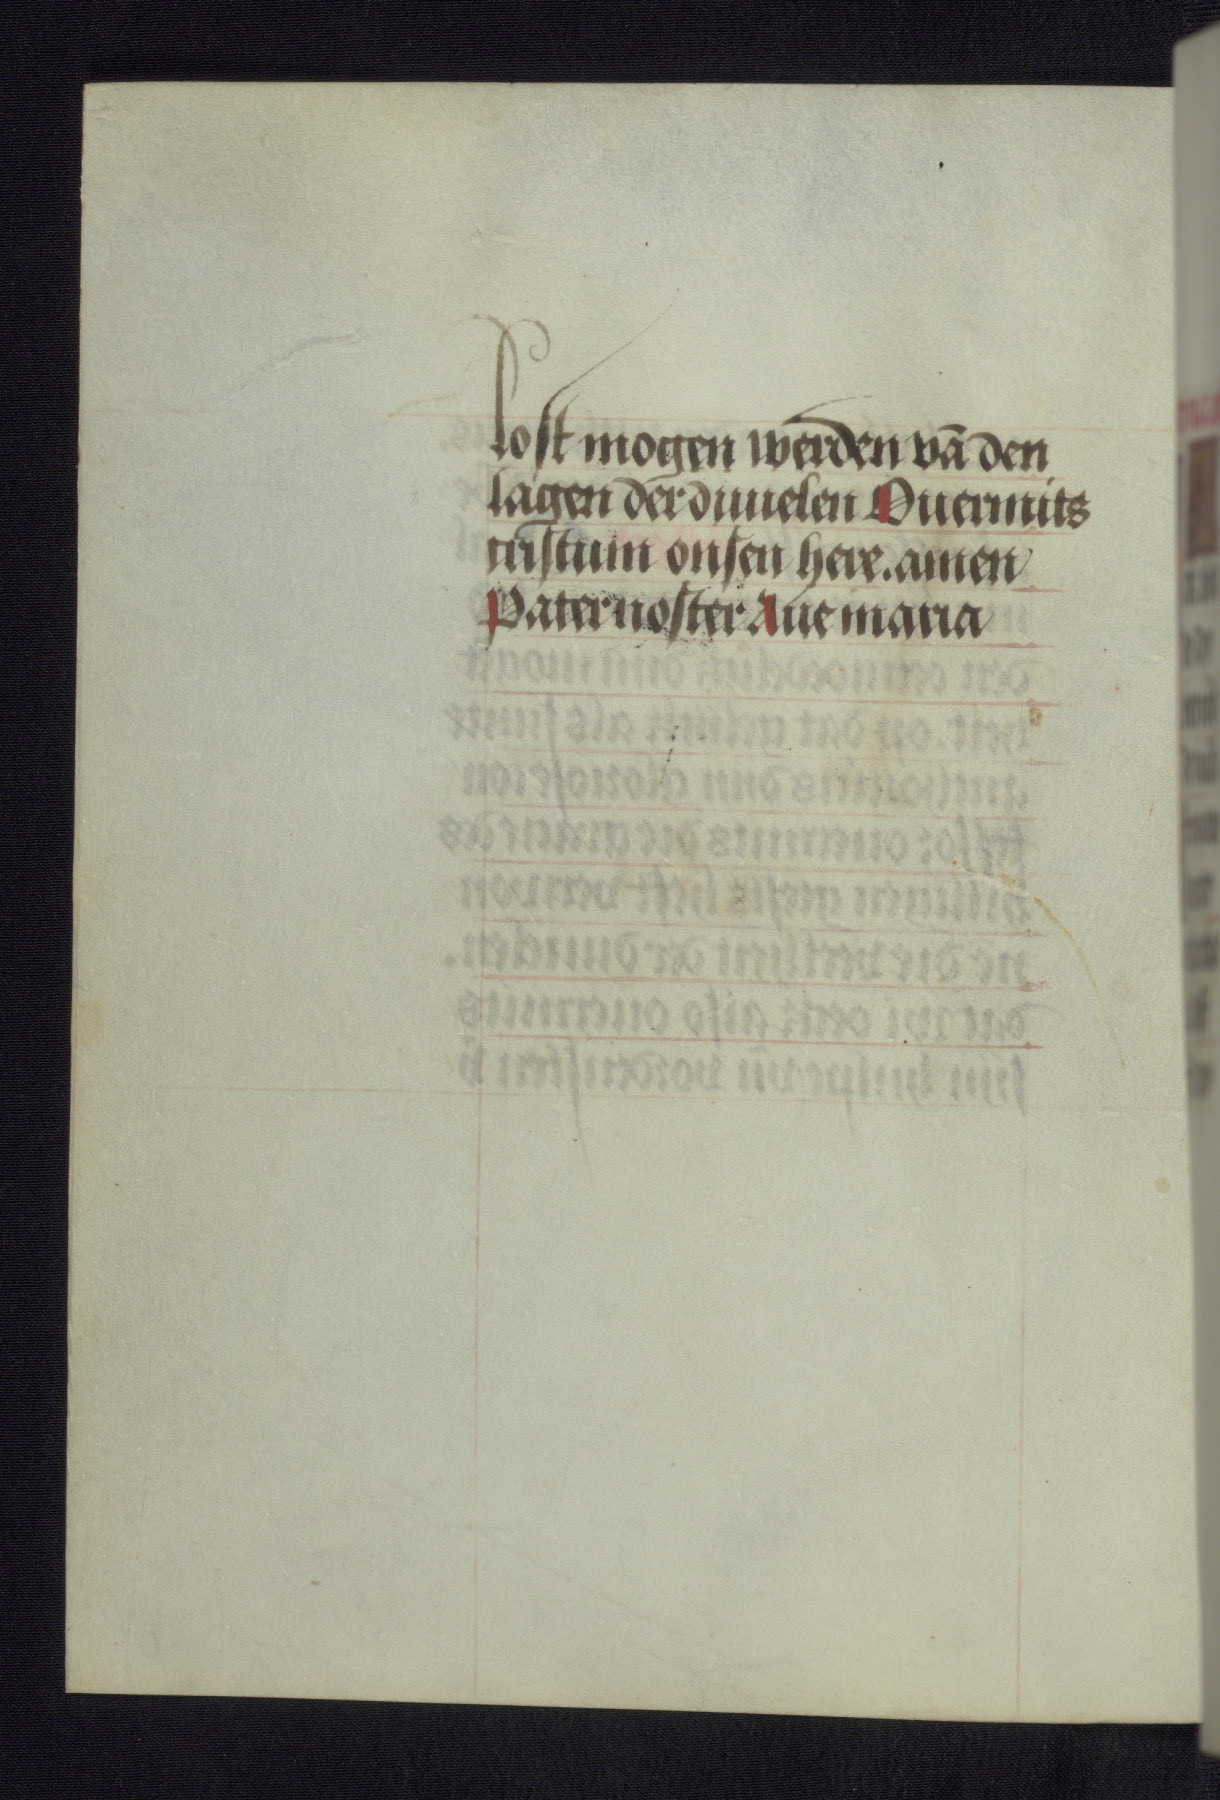 lost mogen werden vā den
lagen der duuelen Ouermits
cristum onsen here. amen
Pater noster Aue maria